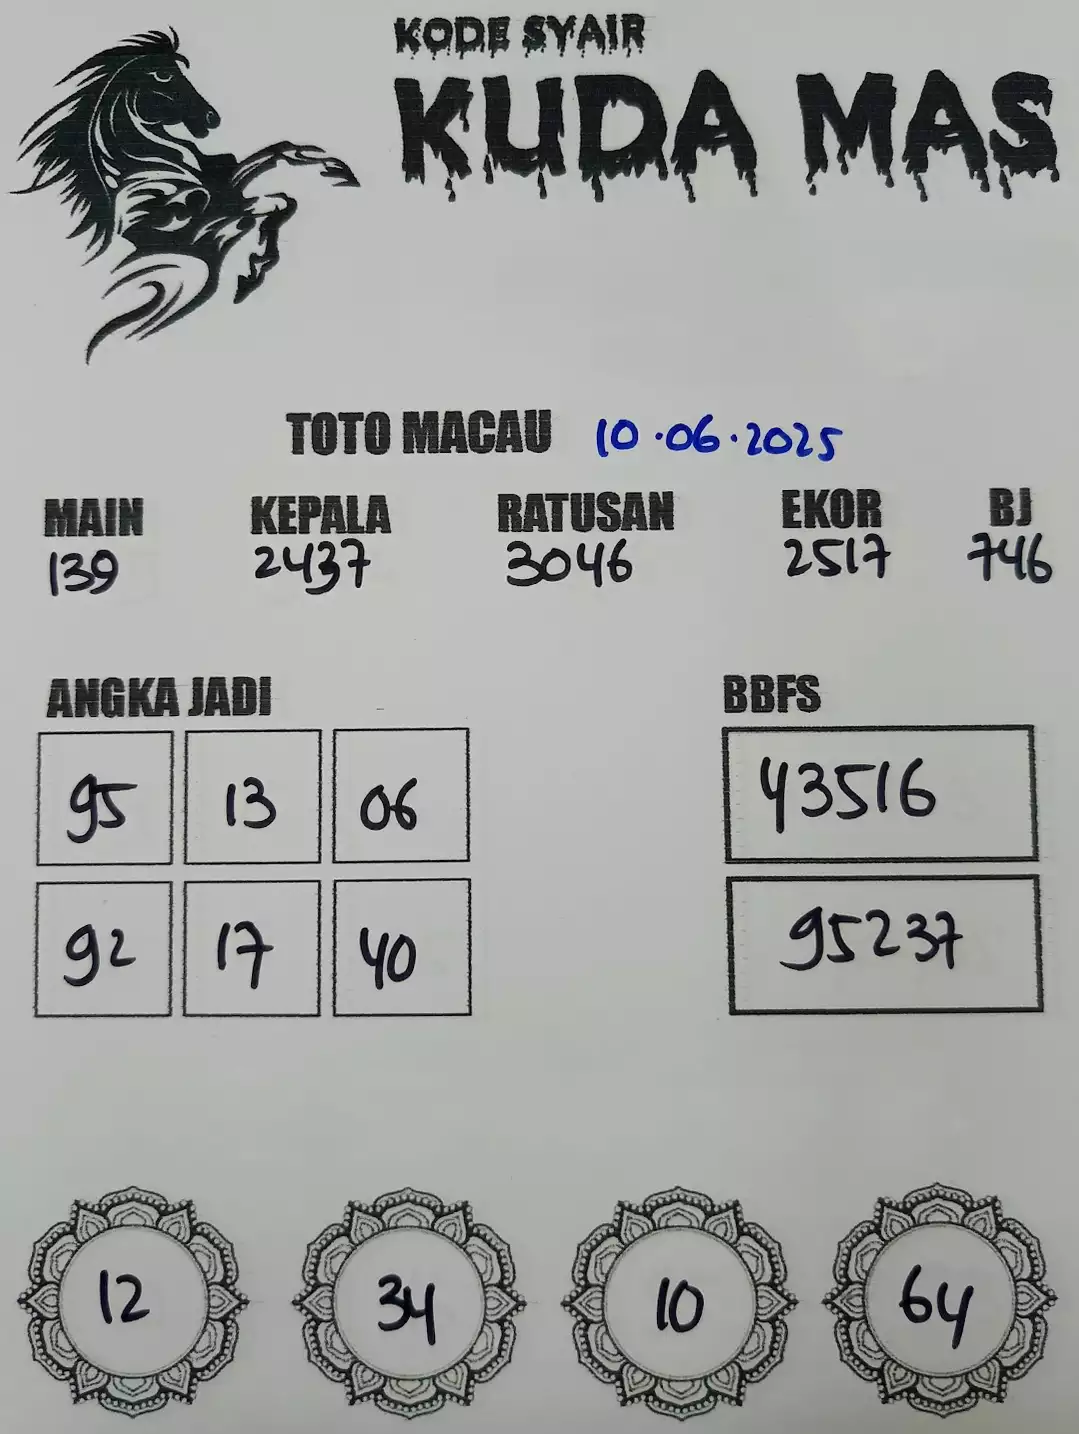 KODE SYAIR
KUDA MAS
TOTO MACAU 10.06.2025
MAIN KEPALA RATUSAN EKOR BJ
139 2437 3046 2517 746
ANGKA JADI BBFS
95 13 06 43516
92 17 40 95237
12 34 10 64